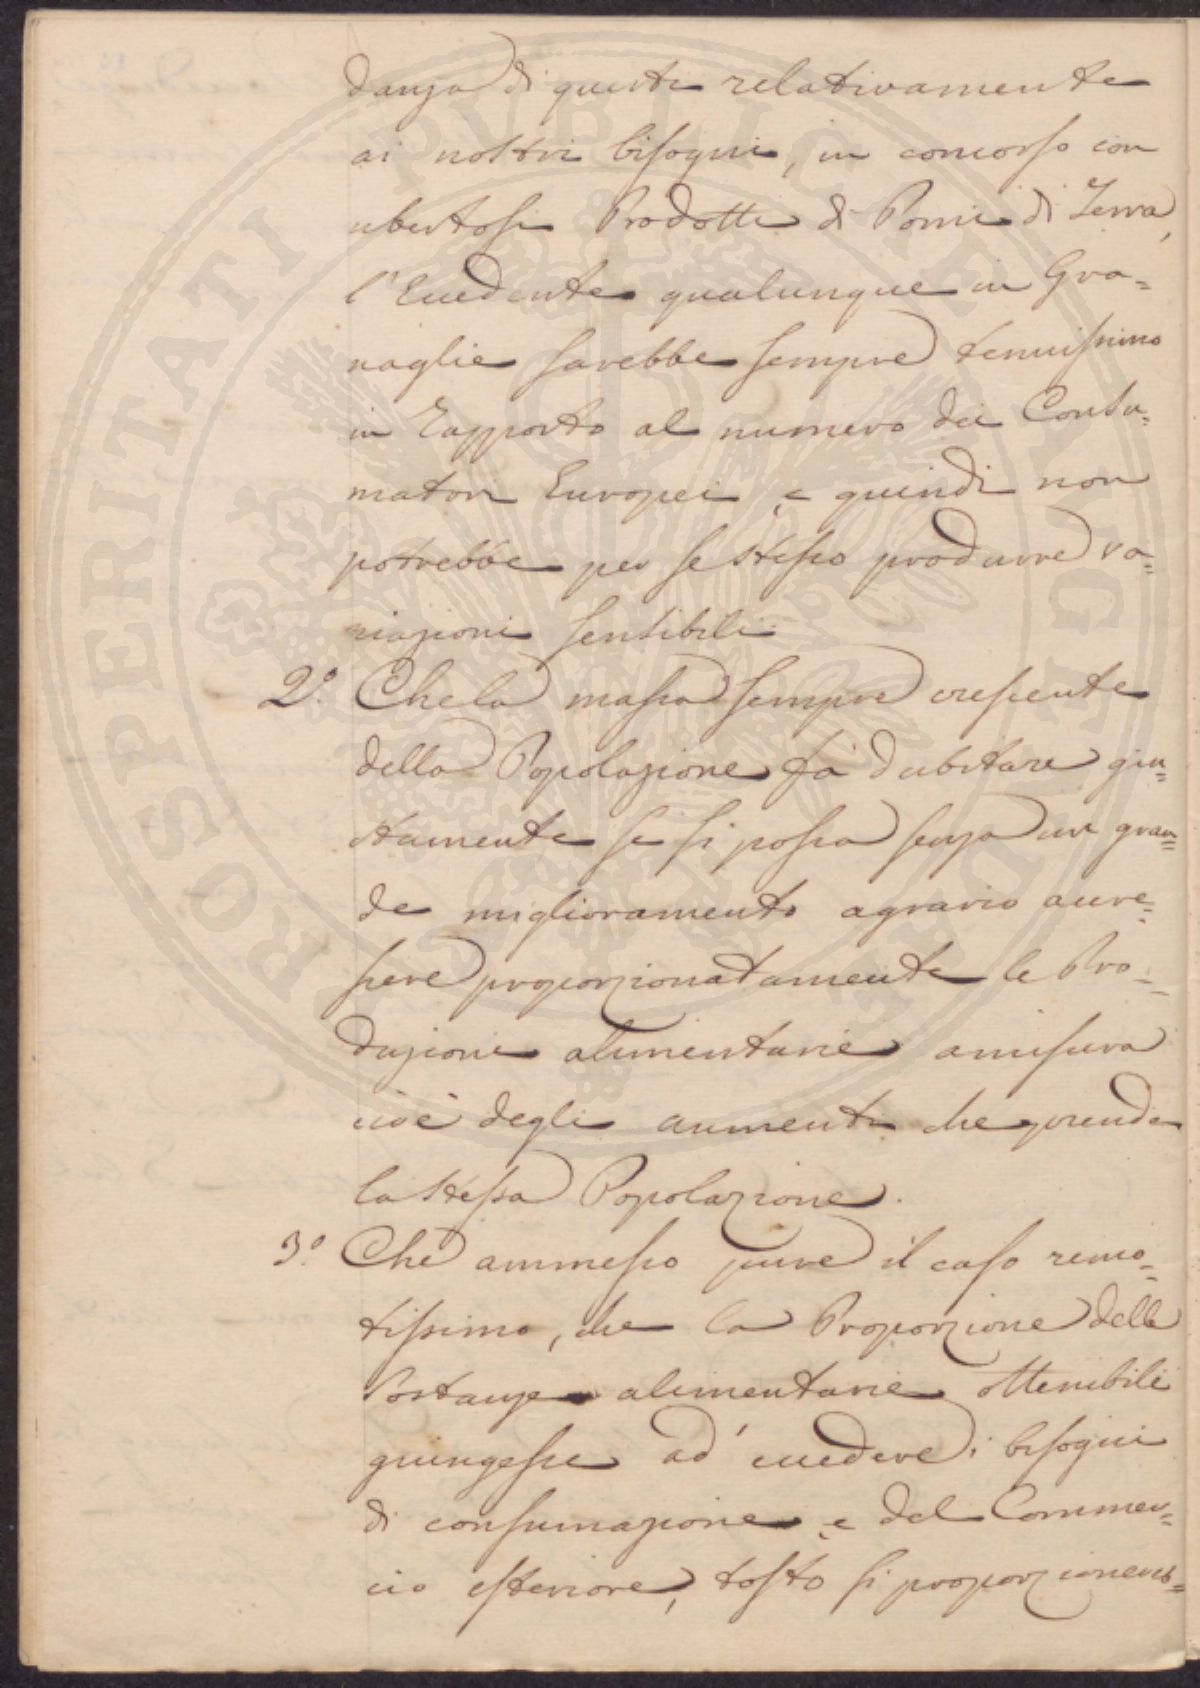 danza di questi relativamente
ai nostri bisogni, in concorso con
ubertosi Prodotti di Pomi di Terra,
l'Eccedente qualunque in Gra=
naglie sarebbe sempre tenuissimo
in Rapporto al numero dei Consu=
matori Europei, e quindi non
potrebbe per se stesso produrre va=
riazioni sensibili.
2.° Che la massa sempre crescente
della Popolazione fà dubitare giu=
stamente se si possa senza un gran=
de miglioramento agrario accre=
scere proporzionatamente le Pro=
duzioni alimentarie a misura
cioè degli aumenti che prende
la stessa Popolazione.
3.° Che ammesso pure il caso remo=
tissimo, che la Proporzione delle
Sostanze alimentarie ottenibili
giungesse ad' eccedere i bisogni
di consumazione, e del Commer=
cio esteriore, tosto si proporzionereb=
PROSPERITATI PUBLICAE AUGENDAE